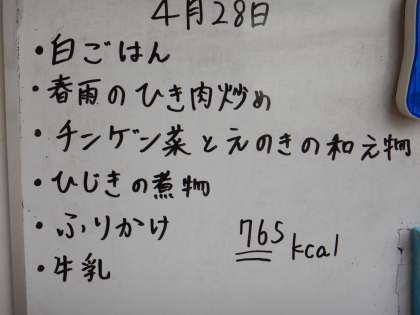 4月28日
・白ごはん
・春雨のひき肉炒め
・チンゲン菜とえのきの和え物
・ひじきの煮物
・ふりかけ
・牛乳
765 kcal